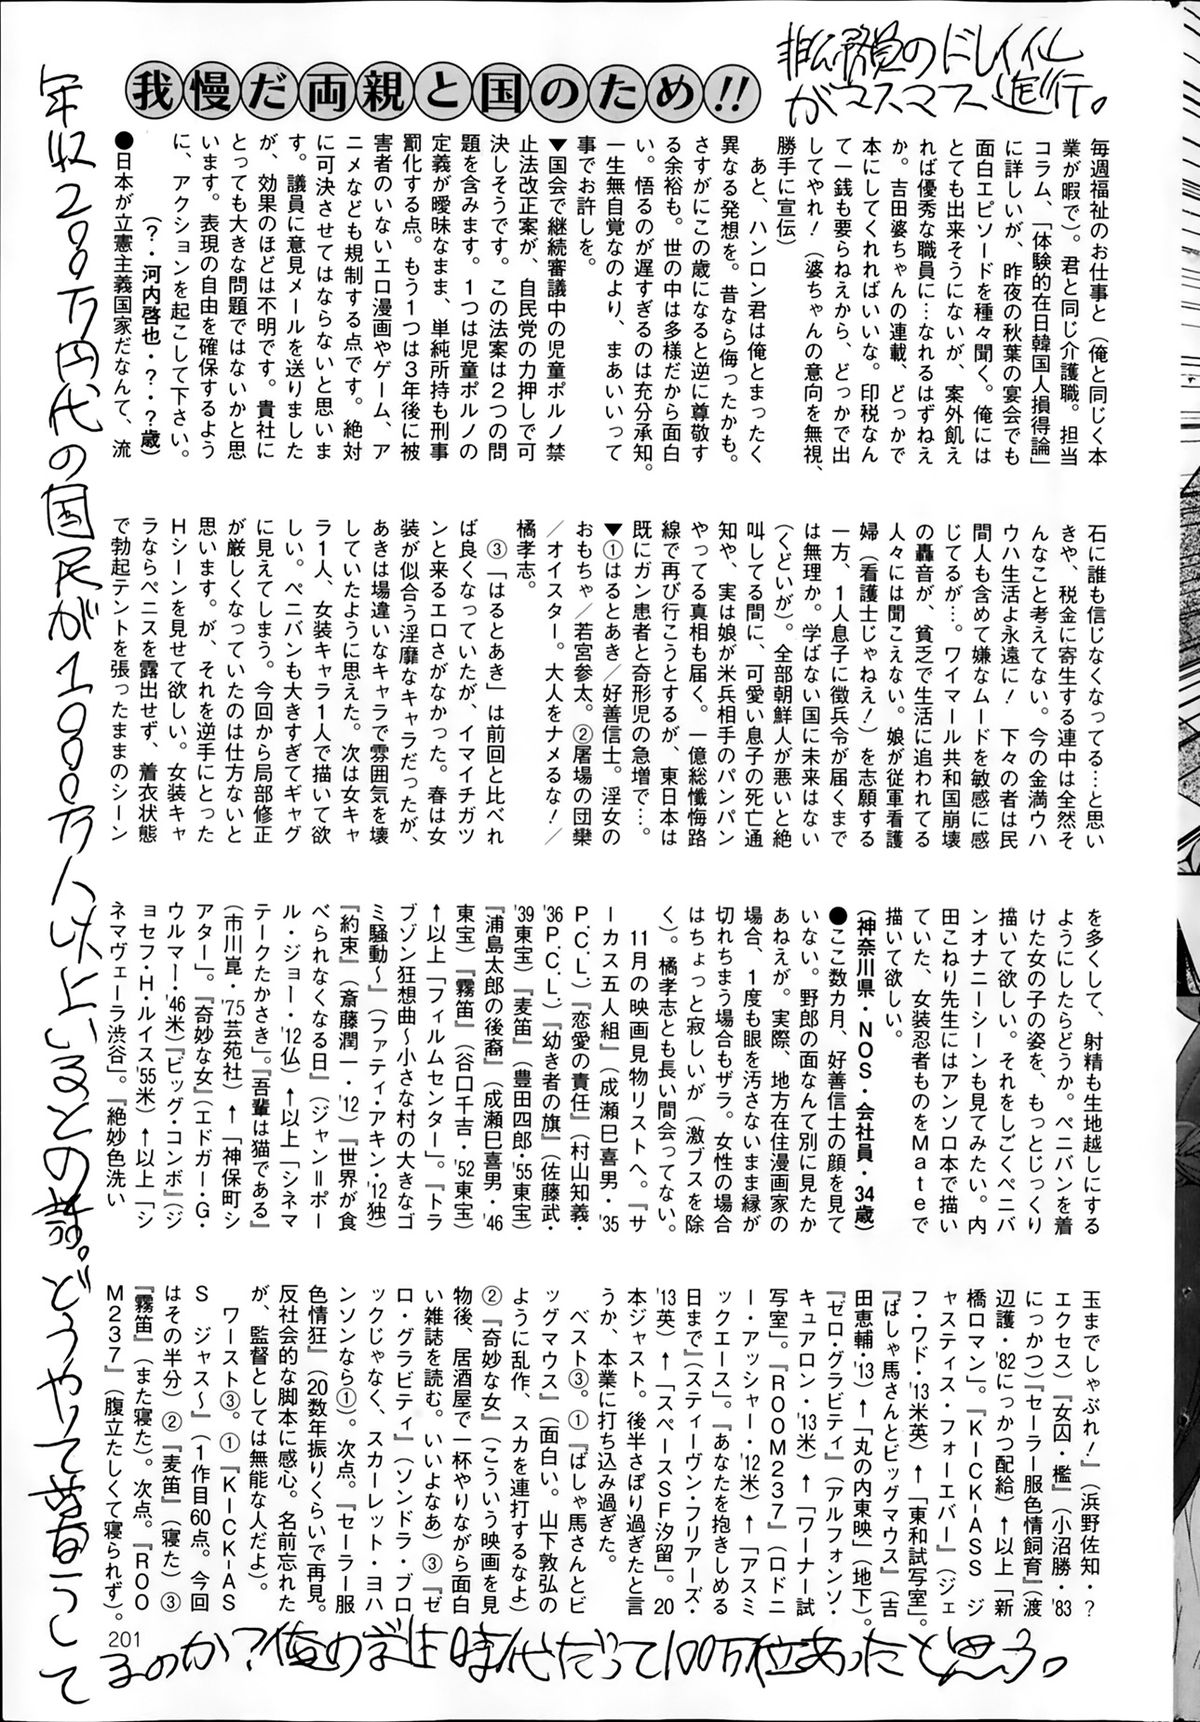 非正규覚のドレイ化
がマスマス進行。
我慢だ両親と国のため!!
毎週福祉のお仕事と(俺と同じく本
業が暇で)。君と同じ介護職。担当
コラム、「体験的在日韓国人損得論」
に詳しいが、昨夜の秋葉の宴会でも
面白エピソードを種々聞く。俺には
とても出来そうにないが、案外飢え
れば優秀な職員に…なれるはずねえ
か。吉田婆ちゃんの連載、どっかで
本にしてくれればいいな。印税なん
て一銭も要らねえから、どっかで出
してやれ!(婆ちゃんの意向を無視、
勝手に宣伝)
あと、ハンロン君は俺とまったく
異なる発想を。昔なら侮ったかも。
さすがにこの歳になると逆に尊敬す
る余裕も。世の中は多様だから面白
い。悟るのが遅すぎるのは充分承知。
一生無自覚なのより、まあいいって
事でお許しを。
▼国会で継続審議中の児童ポルノ禁
止法改正案が、自民党の力押しで可
決しそうです。この法案は2つの問
題を含みます。1つは児童ポルノの
定義が曖昧なまま、単純所持も刑事
罰化する点。もう1つは3年後に被
害者のいないエロ漫画やゲーム、ア
ニメなども規制する点です。絶対
に可決させてはならないと思いま
す。議員に意見メールを送りました
が、効果のほどは不明です。貴社に
とっても大きな問題ではないかと思
います。表現の自由を確保するよう
に、アクションを起こして下さい。
(?・河内啓也・?・?歳)
●日本が立憲主義国家だなんて、流
石に誰も信じなくなってる…と思い
きや、税金に寄生する連中は全然そ
んなこと考えてない。今の金満ウハ
ウハ生活よ永遠に! 下々の者は民
間人も含めて嫌なムードを敏感に感
じてるが…。ワイマール共和国崩壊
の轟音が、貧乏で生活に追われてる
人々には聞こえない。娘が従軍看護
婦(看護士じゃねえ!)を志願する
一方、1人息子に徴兵令が届くまで
は無理か。学ばない国に未来はない
(くどいが)。全部朝鮮人が悪いと絶
叫してる間に、可愛い息子の死亡通
知や、実は娘が米兵相手のパンパン
やってる真相も届く。一億総懺悔路
線で再び行こうとするが、東日本は
既にガン患者と奇形児の急増で…。
▼①はるとあき/好善信士。淫女の
おもちゃ/若宮参太。②屠場の団欒
/オイスター。大人をナメるな!/
橘孝志。
③「はるとあき」は前回と比べれ
ば良くなっていたが、イマイチガツ
ンと来るエロさがなかった。春は女
装が似合う淫靡なキャラだったが、
あきは場違いなキャラで雰囲気を壊
していたように思えた。次は女キャ
ラ1人、女装キャラ1人で描いて欲
しい。ペニバンも大きすぎてギャグ
に見えてしまう。今回から局部修正
が厳しくなっていたのは仕方ないと
思います。が、それを逆手にとった
Hシーンを見せて欲しい。女装キャ
ラならペニスを露出せず、着衣状態
で勃起テントを張ったままのシーン
を多くして、射精も生地越しにする
ようにしたらどうか。ペニバンを着
けた女の子の姿を、もっとじっくり
描いて欲しい。それをしごくペニバ
ンオナニーシーンも見てみたい。内
田こねり先生にはアンソロ本で描い
ていた、女装忍者ものをMateで
描いて欲しい。
(神奈川県・NOS・会社員・34歳)
●ここ数カ月、好善信士の顔を見て
いない。野郎の面なんて別に見たか
あねえが。実際、地方在住漫画家の
場合、1度も眼を汚さないまま縁が
切れちまう場合もザラ。女性の場合
はちょっと寂しいが(激ブスを除
く)。橘孝志とも長い間会ってない。
11月の映画見物リストへ。『サ
ーカス五人組』(成瀬巳喜男・'35
P.C.L.)『恋愛の責任』(村山知義・
'36P.C.L.)『幼き者の旗』(佐藤武・
'39東宝)『麦笛』(豊田四郎・'55東宝)
『浦島太郎の後裔』(成瀬巳喜男・'46
東宝)『霧笛』(谷口千吉・'52東宝)
↑以上「フィルムセンター」。『トラ
ブゾン狂想曲〜小さな村の大きなゴ
ミ騒動〜』(ファティ・アキン・'12独)
『約束』(斎藤潤一・'12)『世界が食
べられなくなる日』(ジャン=ポー
ル・ジョー・'12仏)↑以上「シネマ
テークたかさき」。『吾輩は猫である』
(市川崑・'75芸苑社)↑「神保町シ
アター」。『奇妙な女』(エドガー・G・
ウルマー・'46米)『ビッグ・コンボ』(ジ
ョセフ・H・ルイス'55米)↑以上「シ
ネマヴェーラ渋谷」。『絶妙色洗い
玉までしゃぶれ!』(浜野佐知・?
エクセス)『女囚・檻』(小沼勝・'83
にっかつ)『セーラー服色情飼育』(渡
辺護・'82にっかつ配給)↑以上「新
橋ロマン」。『KICK-ASS ジ
ャスティス・フォーエバー』(ジェ
フ・ワド・'13米英)↑「東和試写室」。
『ばしゃ馬さんとビッグマウス』(吉
田恵輔・'13)↑「丸の内東映」(地下)。
『ゼロ・グラビティ』(アルフォンソ・
キュアロン・'13米)↑「ワーナー試
写室」。『ROOM237』(ロドニ
ー・アッシャー・'12米)↑「アスミ
ックエース」。『あなたを抱きしめる
日まで』(スティーヴン・フリアーズ・
'13英)↑「スペースSF汐留」。20
本ジャスト。後半さぼり過ぎたと言
うか、本業に打ち込み過ぎた。
ベスト③。①『ばしゃ馬さんとビ
ッグマウス』(面白い。山下敦弘の
ように乱作、スカを連打するなよ)
②『奇妙な女』(こういう映画を見
物後、居酒屋で一杯やりながら面白
い雑誌を読む。いいよなあ)③『ゼ
ロ・グラビティ』(ソンドラ・ブロ
ックじゃなく、スカーレット・ヨハ
ンソンなら①)。次点。『セーラー服
色情狂』(20数年振りくらいで再見。
反社会的な脚本に感心。名前忘れた
が、監督としては無能な人だよ)。
ワースト③。①『KICK-AS
S ジャス〜』(1作目60点。今回
はその半分)②『麦笛』(寝た)③
『霧笛』(また寝た)。次点。『ROO
M237』(腹立たしくて寝られず)。
201
年収200万円代の国民が1000万人以上いるとの話。どうやって暮らして
るのか?俺の学生時代だって100万位あったと思う。